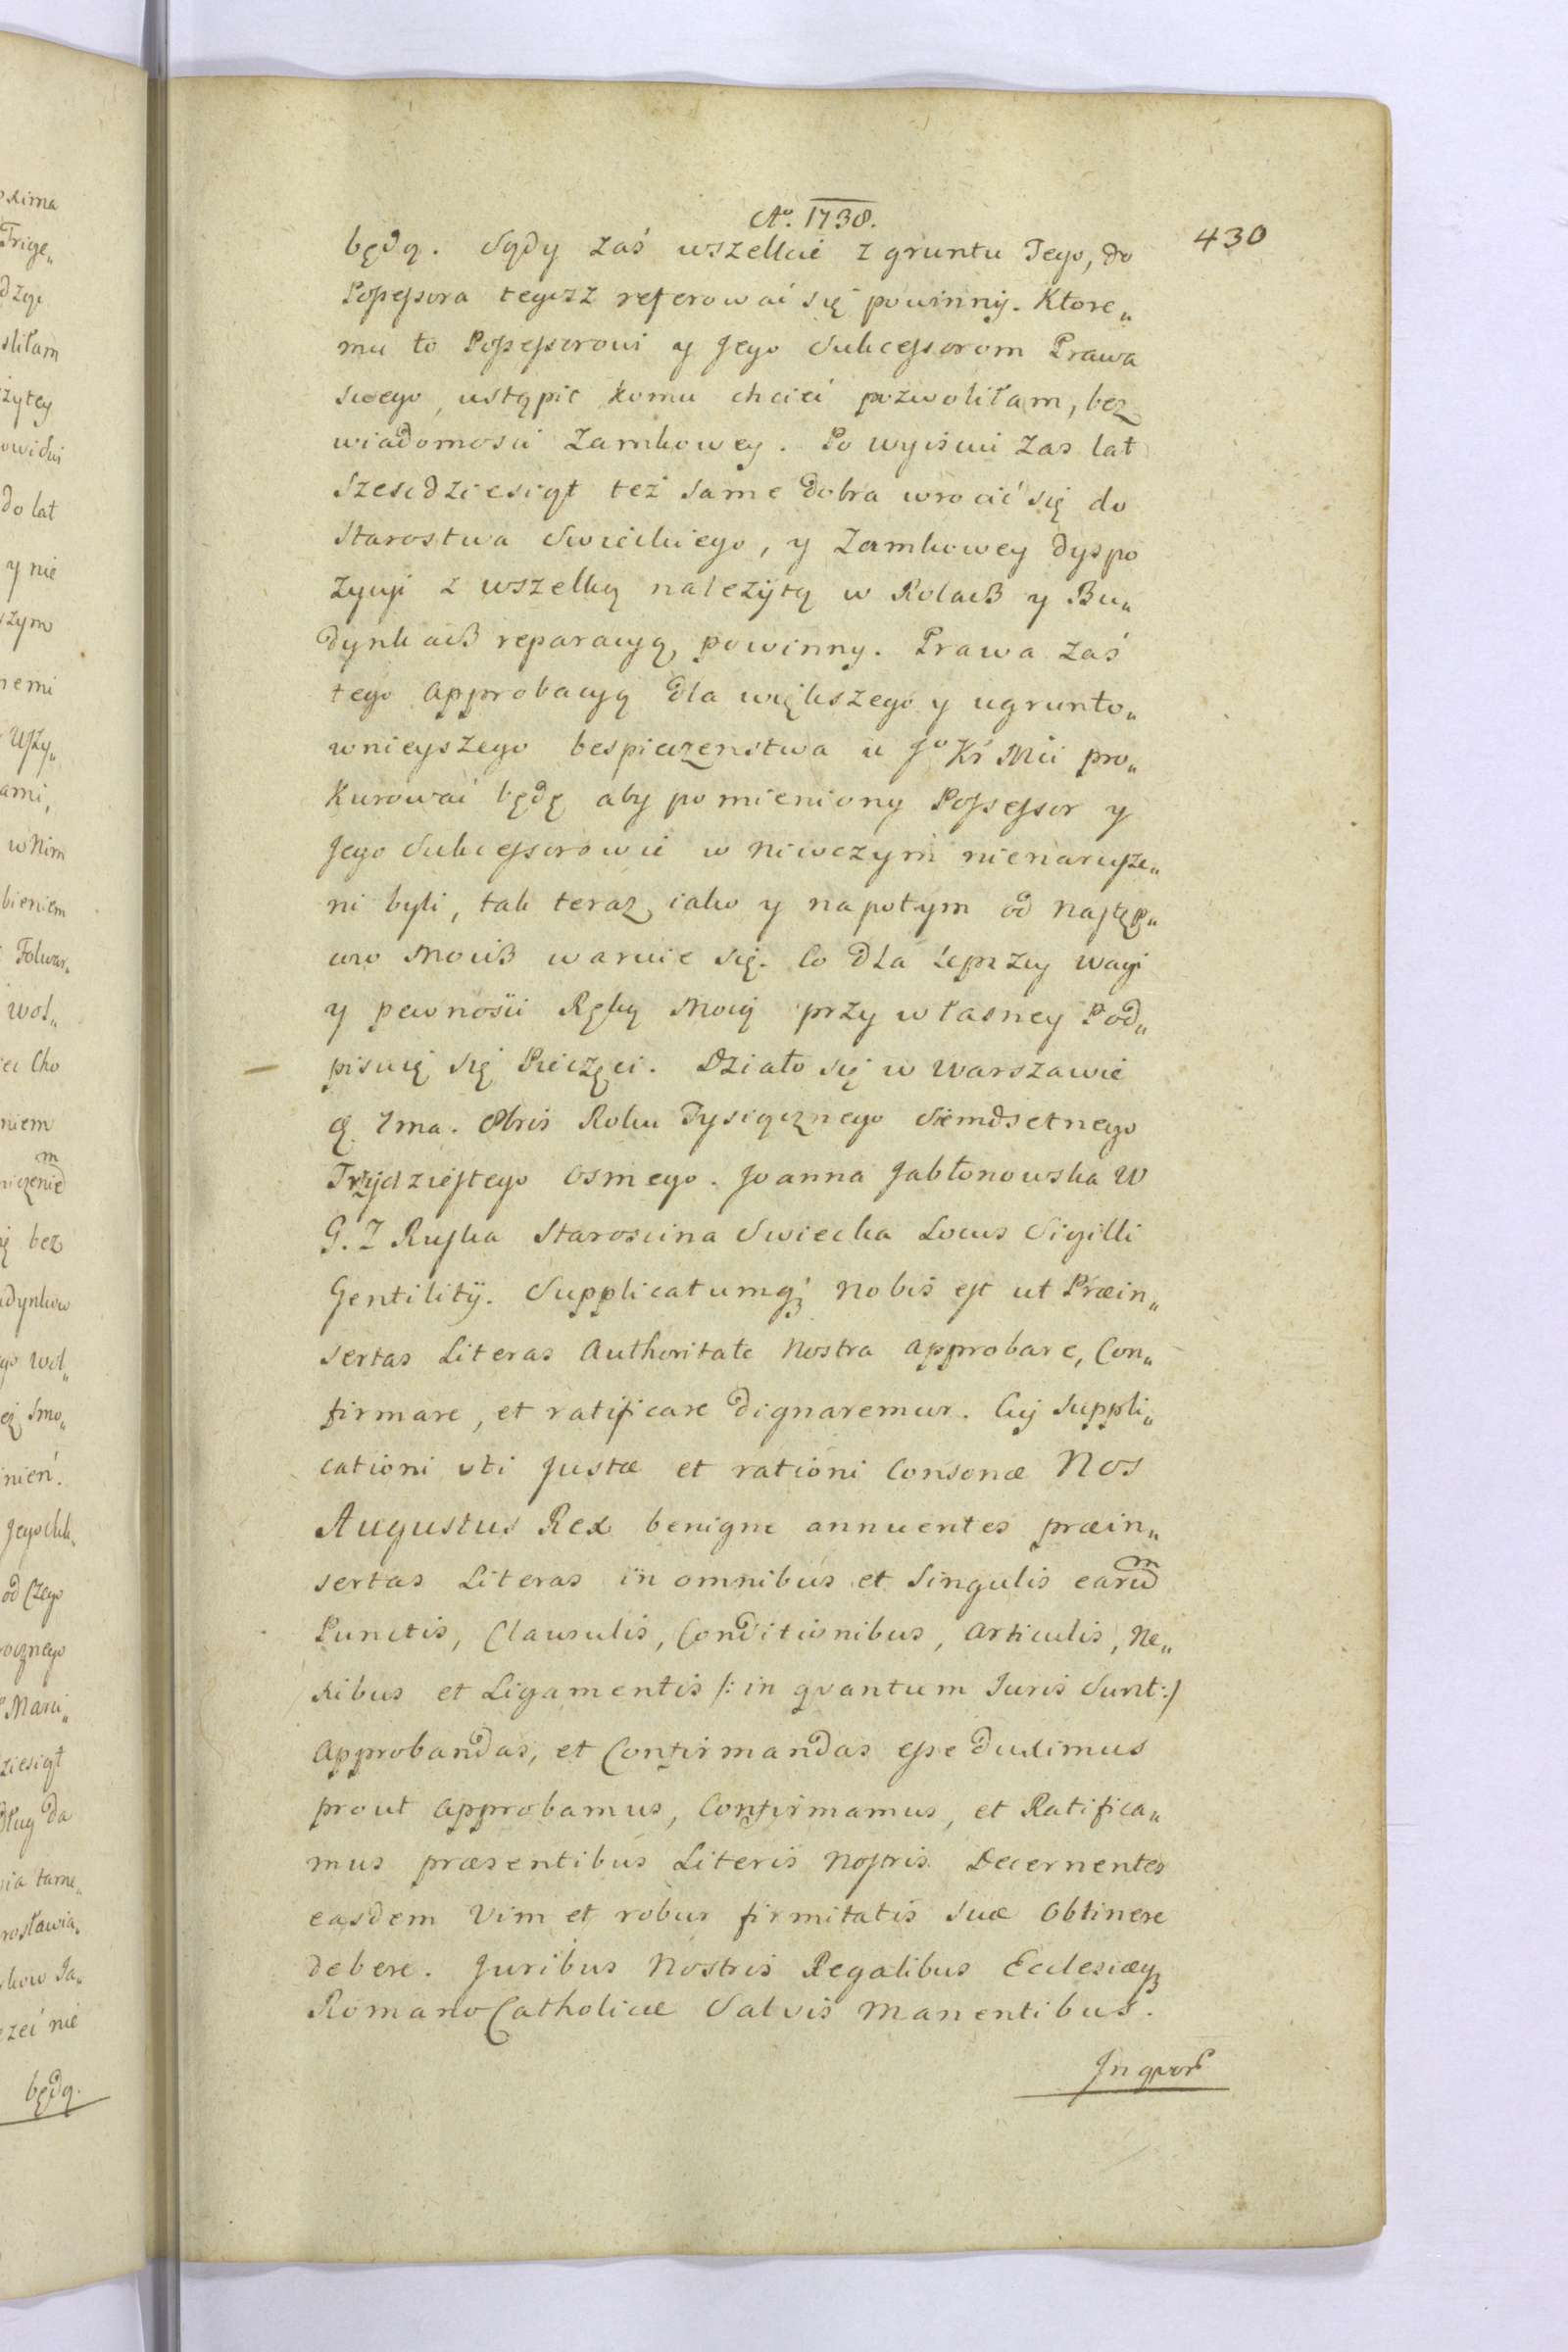 Ao. 1738.
430
będą. Sądy zaś wszelkie z gruntu Tego, do
Possessora tegosz referować się powinny. Ktore„
mu to Possessorowi y Jego Sukcessorom Prawa
swego, ustąpic komu chcieć pozwoliłam, bez
wiadomosci Zamkowey. Po wyisciu zas lat
Szescdziesiąt też same Dobra wrocić się do
Starostwa Swieckiego, y Zamkowey Dyspo
zycyi z wszelką należytą w Rolach y Bu„
dynkach reparacyą, powinny. Prawa zaś
tego approbacyą dla większego y ugrunto„
wnieyszego bespieczenstwa u Jo Kr Mci pro„
kurować będę aby pomieniony Possessor y
Jego Sukcessorowie w niwczym nienarusze„
ni byli, tak teraz, iako y napotym od Następ„
cow Moich waruie się. Co dla lepszey wagi
y pewnośći Ręką Moią przy własney Pod„
pisuię się Pieczęci. Działo się w Warszawie
d. 7ma. 8bris Roku Tysiącznego Siemdsetnego
Trzydziestego Osmego. Joanna Jabłonowska W
G. Z Ruska Staroscina Swiecka Locus Sigilli
Gentilitij. Supplicatumq; nobis est ut Præin„
sertas Literas Authoritate Nostra approbare, Con„
firmare, et ratificare dignaremur. Cuj Suppli„
cationi uti Justæ et rationi Consonæ Nos
Augustus Rex benigne annuentes præin„
sertas Literas in omnibus et Singulis earum
Punctis, Clausulis, Conditionibus, Articulis, Ne„
xibus et Ligamentis /: in qvantum Juris Sunt :/
Approbandas, et Confirmandas esse duximus
prout approbamus, Confirmamus, et Ratifica„
mus præsentibus Literis Nostris. Decernentes
easdem Vim et robur firmitatis suæ Obtinere
debere. Juribus Nostris Regalibus Ecclesiæq;
Romano Catholicæ Salvis manentibus.
In qvor